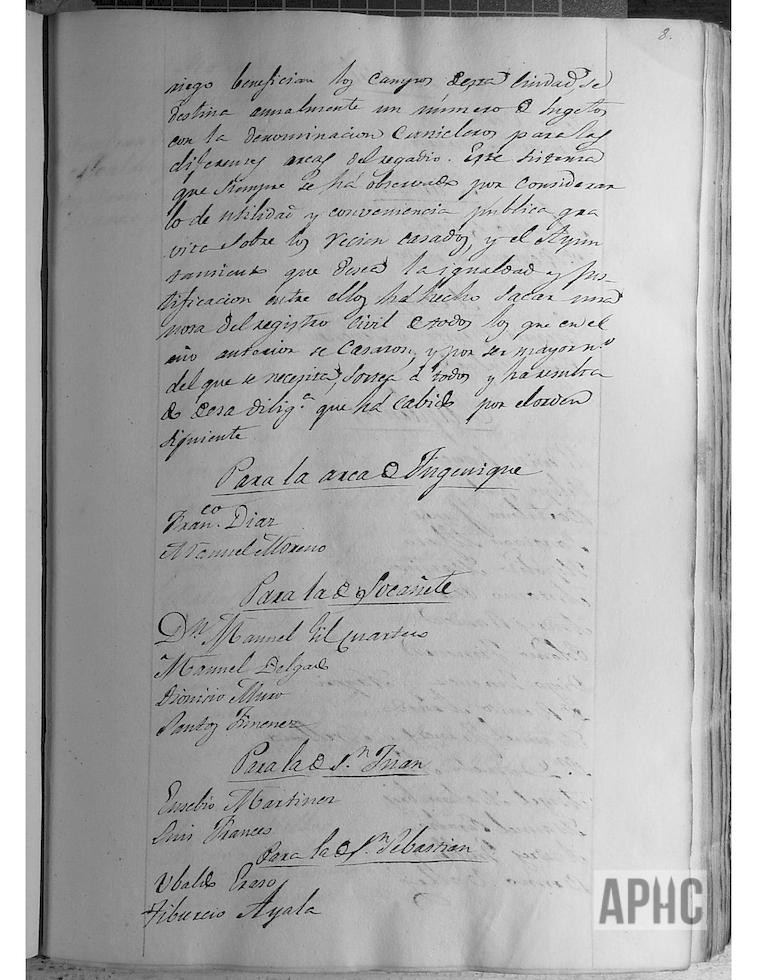 8.
riego benefician los campos de esta Ciudad, se
destina anualmente un número de sugetos
con la denominacion Canicleros para las
diferentes arcas del regadio. Este sistema
que siempre se há observado por considerar
lo de utilidad y conveniencia publica gra
vita sobre los recien casados, y el Ayun
tamiento que desea la igualdad y jus-
tificacion entre ellos há hecho sacar una
nota del registro civil de todos los que en el
año anterior se Casaron, y por ser mayor n.º
del que se necesita, sortea á todos y ha resulta
do de esa dilig.ª que há cabido por el orden
siguiente
Para la arca de
Fran.co Diaz
Manuel Moreno
Para la de Socañete
D.n Manuel Gil Quartero
Manuel Delgado
Dionicio Muro
Santos Jimenez
Para la de S.n Juan
Eusebio Martinez
Luis Frances
Para la de S.n Sebastian
Ubaldo Eraso
Tiburcio Ayala
APHC